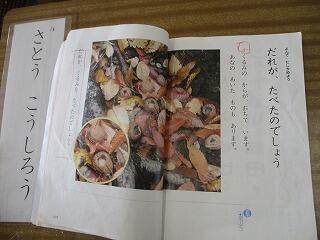 よんで たしかめよう
だれが、たべたのでしょう
くるみの からが おちて います。
あなの あいた ものも あります。
さとう こうしろう